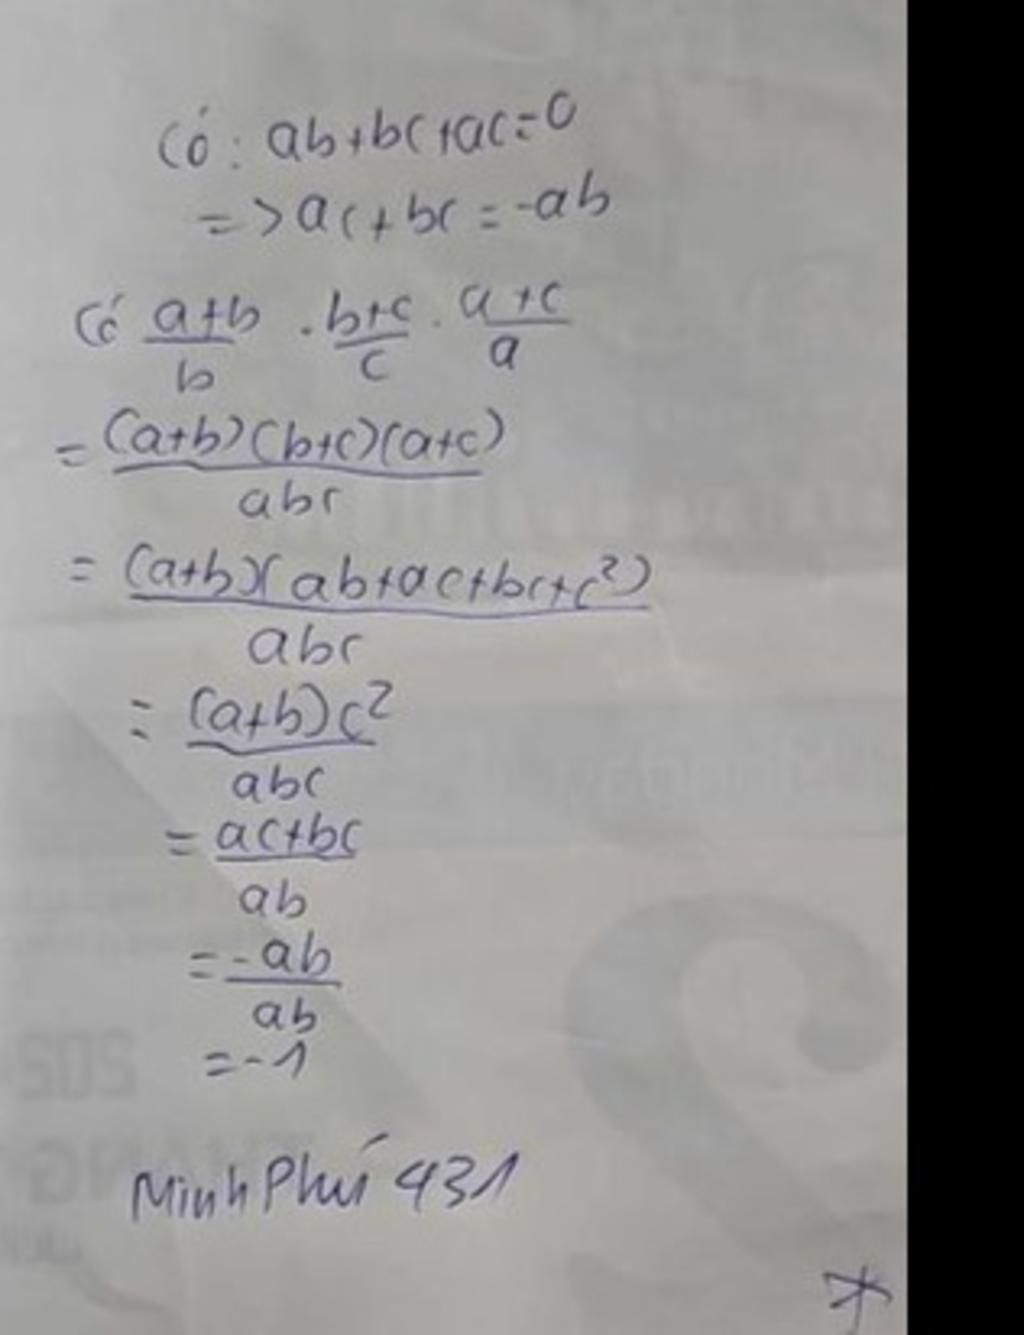 Có: ab+bc+ac=0
=>ac+bc=-ab
Có a+b/b . b+c/c . a+c/a
= (a+b)(b+c)(a+c)/abc
= (a+b)(ab+ac+bc+c²)/abc
= (a+b)c²/abc
= ac+bc/ab
= -ab/ab
=-1
Minh Phú 431